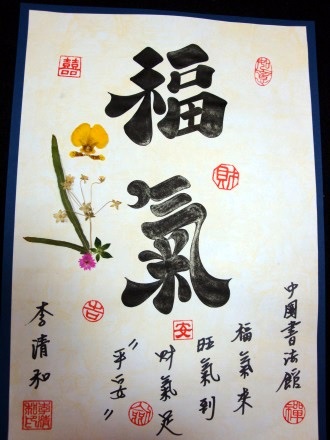 福氣
中國書法館
福氣來
旺氣到
财氣足
"平安"
李清和
囍
財
吉
安
禪